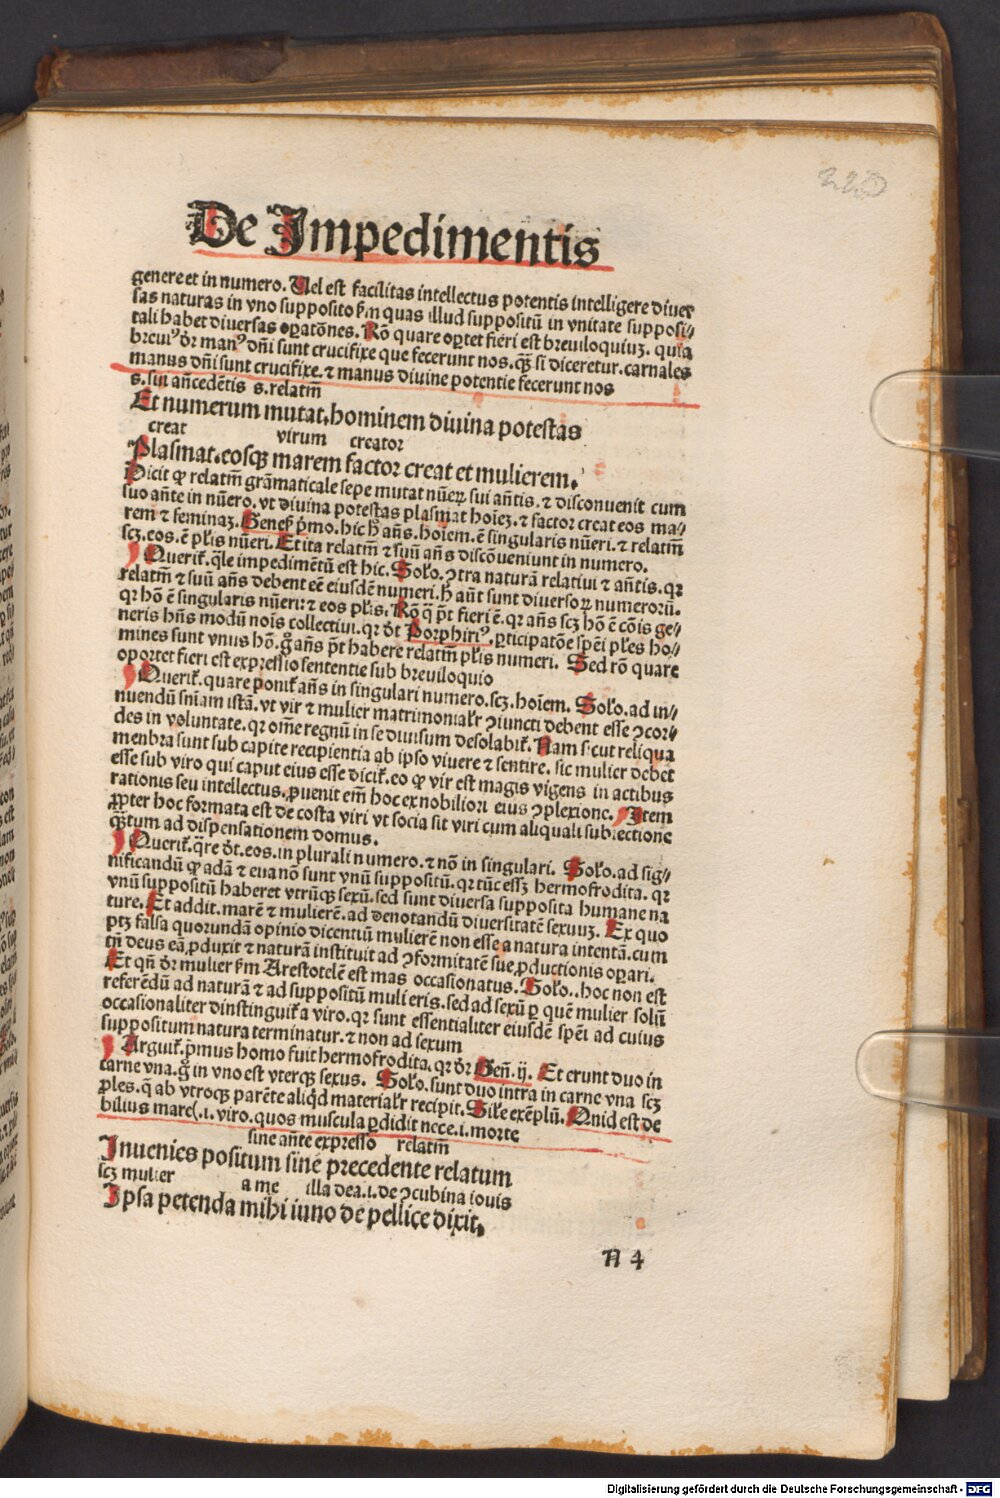 De Impedimentis
genere et in numero. Uel est facilitas intellectus potentis intelligere diuer
sas naturas in vno supposito ẜm quas illud suppositū in vnitate supposi⸗
tali habet diuersas oꝑatōnes. Rō quare oꝑtet fieri est breuiloquiuꝫ. quia
breuiꝰ dr̄ manꝰ dn̄i sunt crucifixe que fecerunt nos. qꝫ si diceretur. carnales
manus dn̄i sunt crucifixe. ⁊ manus diuine potentie fecerunt nos
s. sui an̄cedētis s. relatm̄
Et numerum mutat, hominem diuina potestas
creat virum creator
Plasmat. eosqꝫ marem factor creat et mulierem.
Dicit ꝙ relatm̄ grāmaticale sepe mutat nūeꝝ sui an̄tis. ⁊ disconuenit cum
suo an̄te in nūero. vt diuina potestas plasmat hoīeꝫ. ⁊ factor creat eos ma⸗
rem ⁊ feminaꝫ. Geneẜ pⁱmo. hic hꝰ an̄s. hoīem. ē singularis nūeri. ⁊ relatm̄
scꝫ. eos. ē pl̄is nūeri. Et ita relatm̄ ⁊ suū an̄s discōueniunt in numero.
Querit᷑. q̄le impedimētū est hic. Soło. ꝯtra naturā relatiui ⁊ an̄tis. qꝛ
relatm̄ ⁊ suū an̄s debent eē eiusdē numeri. hꝰ aūt sunt diuersoꝝ numeroꝝ.
qꝛ hō ē singularis nūeri: ⁊ eos pl̄is. Rō q̄ pn̄t fieri ē. qꝛ an̄s scꝫ hō ē cōis ge⸗
neris hn̄s modū nois̄ collectiui. qꝛ dt̄ Porphiriꝰ. ꝑticipatōe spēi pl̄es ho⸗
mines sunt vnus hō. g̊ an̄s pt̄ habere relatm̄ pl̄is numeri. Sed rō quare
oportet fieri est expressio sententie sub breuiloquio
Querit᷑. quare ponit᷑ an̄s in singulari numero. scꝫ. hoīem. Soło. ad in⸗
nuendū sn̄iam istā. vt vir ⁊ mulier matrimonialr̄ ꝯiuncti debent esse ꝯcor⸗
des in voluntate. qꝛ om̄e regnū in se diuisum desolabit᷑. Nam sicut reliqua
menbra sunt sub capite recipientia ab ipso viuere ⁊ sentire. sic mulier debet
esse sub viro qui caput eius esse dicit᷑. eo ꝙ vir est magis vigens in actibus
rationis seu intellectus. ꝓuenit em̄ hoc ex nobiliori eius ꝯplexione. Item
ꝓpter hoc formata est de costa viri vt socia sit viri cum aliquali subiectione
qꝫtum ad dispensationem domus.
Querit᷑. q̄re dt̄. eos. in plurali numero. ⁊ nō in singulari. Soło. ad sig⸗
nificandū ꝙ adā ⁊ eua nō sunt vnū suppositū. qꝛ tūc essꝫ hermofrodita. qꝛ
vnū suppositū haberet vtrūqꝫ sexū. sed sunt diuersa supposita humane na
ture. Et addit. marē ⁊ mulierē. ad denotandū diuersitatē sexuuꝫ. Ex quo
ptꝫ falsa quorundā opinio dicentiū mulierē non esse a natura intentā. cum
tn̄ deus eā ꝓduxit ⁊ naturā instituit ad ꝯformitatē sue ꝓductionis oꝑari.
Et qn̄ dr̄ mulier ẜm Arestotelē est mas occasionatus. Soło.. hoc non est
referēdū ad naturā ⁊ ad suppositū mulieris. sed ad sexū ꝑ quē mulier solū
occasionaliter dinstinguit᷑ a viro. qꝛ sunt essentialiter eiusdē spēi ad cuius
suppositum natura terminatur. ⁊ non ad sexum
Arguit᷑. pⁱmus homo fuit hermofrodita. qꝛ dr̄ Gen̄. ij. Et erunt duo in
carne vna. g̊ in vno est vterqꝫ sexus. Soło. sunt duo intra in carne vna scꝫ
ꝓles. q̄ ab vtroqꝫ parēte aliqⁱd materialr̄ recipit. Sil̄e exēplū. Quid est de
bilius mare. i. viro. quos muscula ꝑdidit nece. i. morte
sine an̄te expresso relatm̄
Inuenies positum sine precedente relatum
scꝫ mulier a me illa dea. i. de ꝯcubina iouis
Ipsa petenda mihi iuno de pellice dixit.
A 4
Digitalisierung gefördert durch die Deutsche Forschungsgemeinschaft - DFG